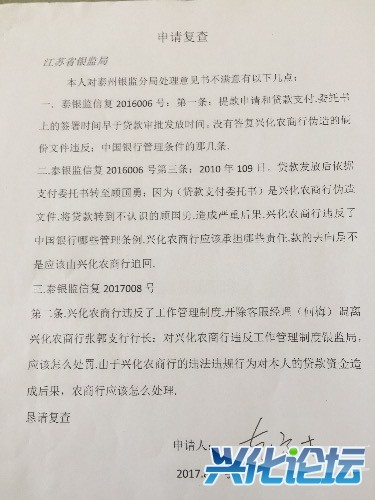 申请复查
江苏省银监局
本人对泰州银监分局处理意见书不满意有以下几点:
一．泰银监信复2016006号：第一条：提款申请和贷款支付.委托书
上的签署时间早于贷款审批发放时间，没有答复兴化农商行伪造的何
份文件违反；中国银行管理条件的那几条.
二.泰银监信复2016006号第三条：2010年109日。贷款发放后依据
支付委托书转至顾国勇；因为（贷款支付委托书）是兴化农商行伪造
文件.将贷款转到不认识的顾国勇.造成严重后果.兴化农商行违反了
中国银行哪些管理条例.兴化农商行应该承担哪些责任.款的去向是不
是应该由兴化农商行追回.
三.泰银监信复2017008号
第二条.兴化农商行违反了工作管理制度.开除客服经理（何梅）调离
兴化农商行张郭支行行长；对兴化农商行违反工作管理制度银监局，
应该怎么处罚.由于兴化农商行的违法违规行为对本人的贷款资金造
成后果，农商行应该怎么处理.
恳请复查
申请人：
2017.
兴化论坛